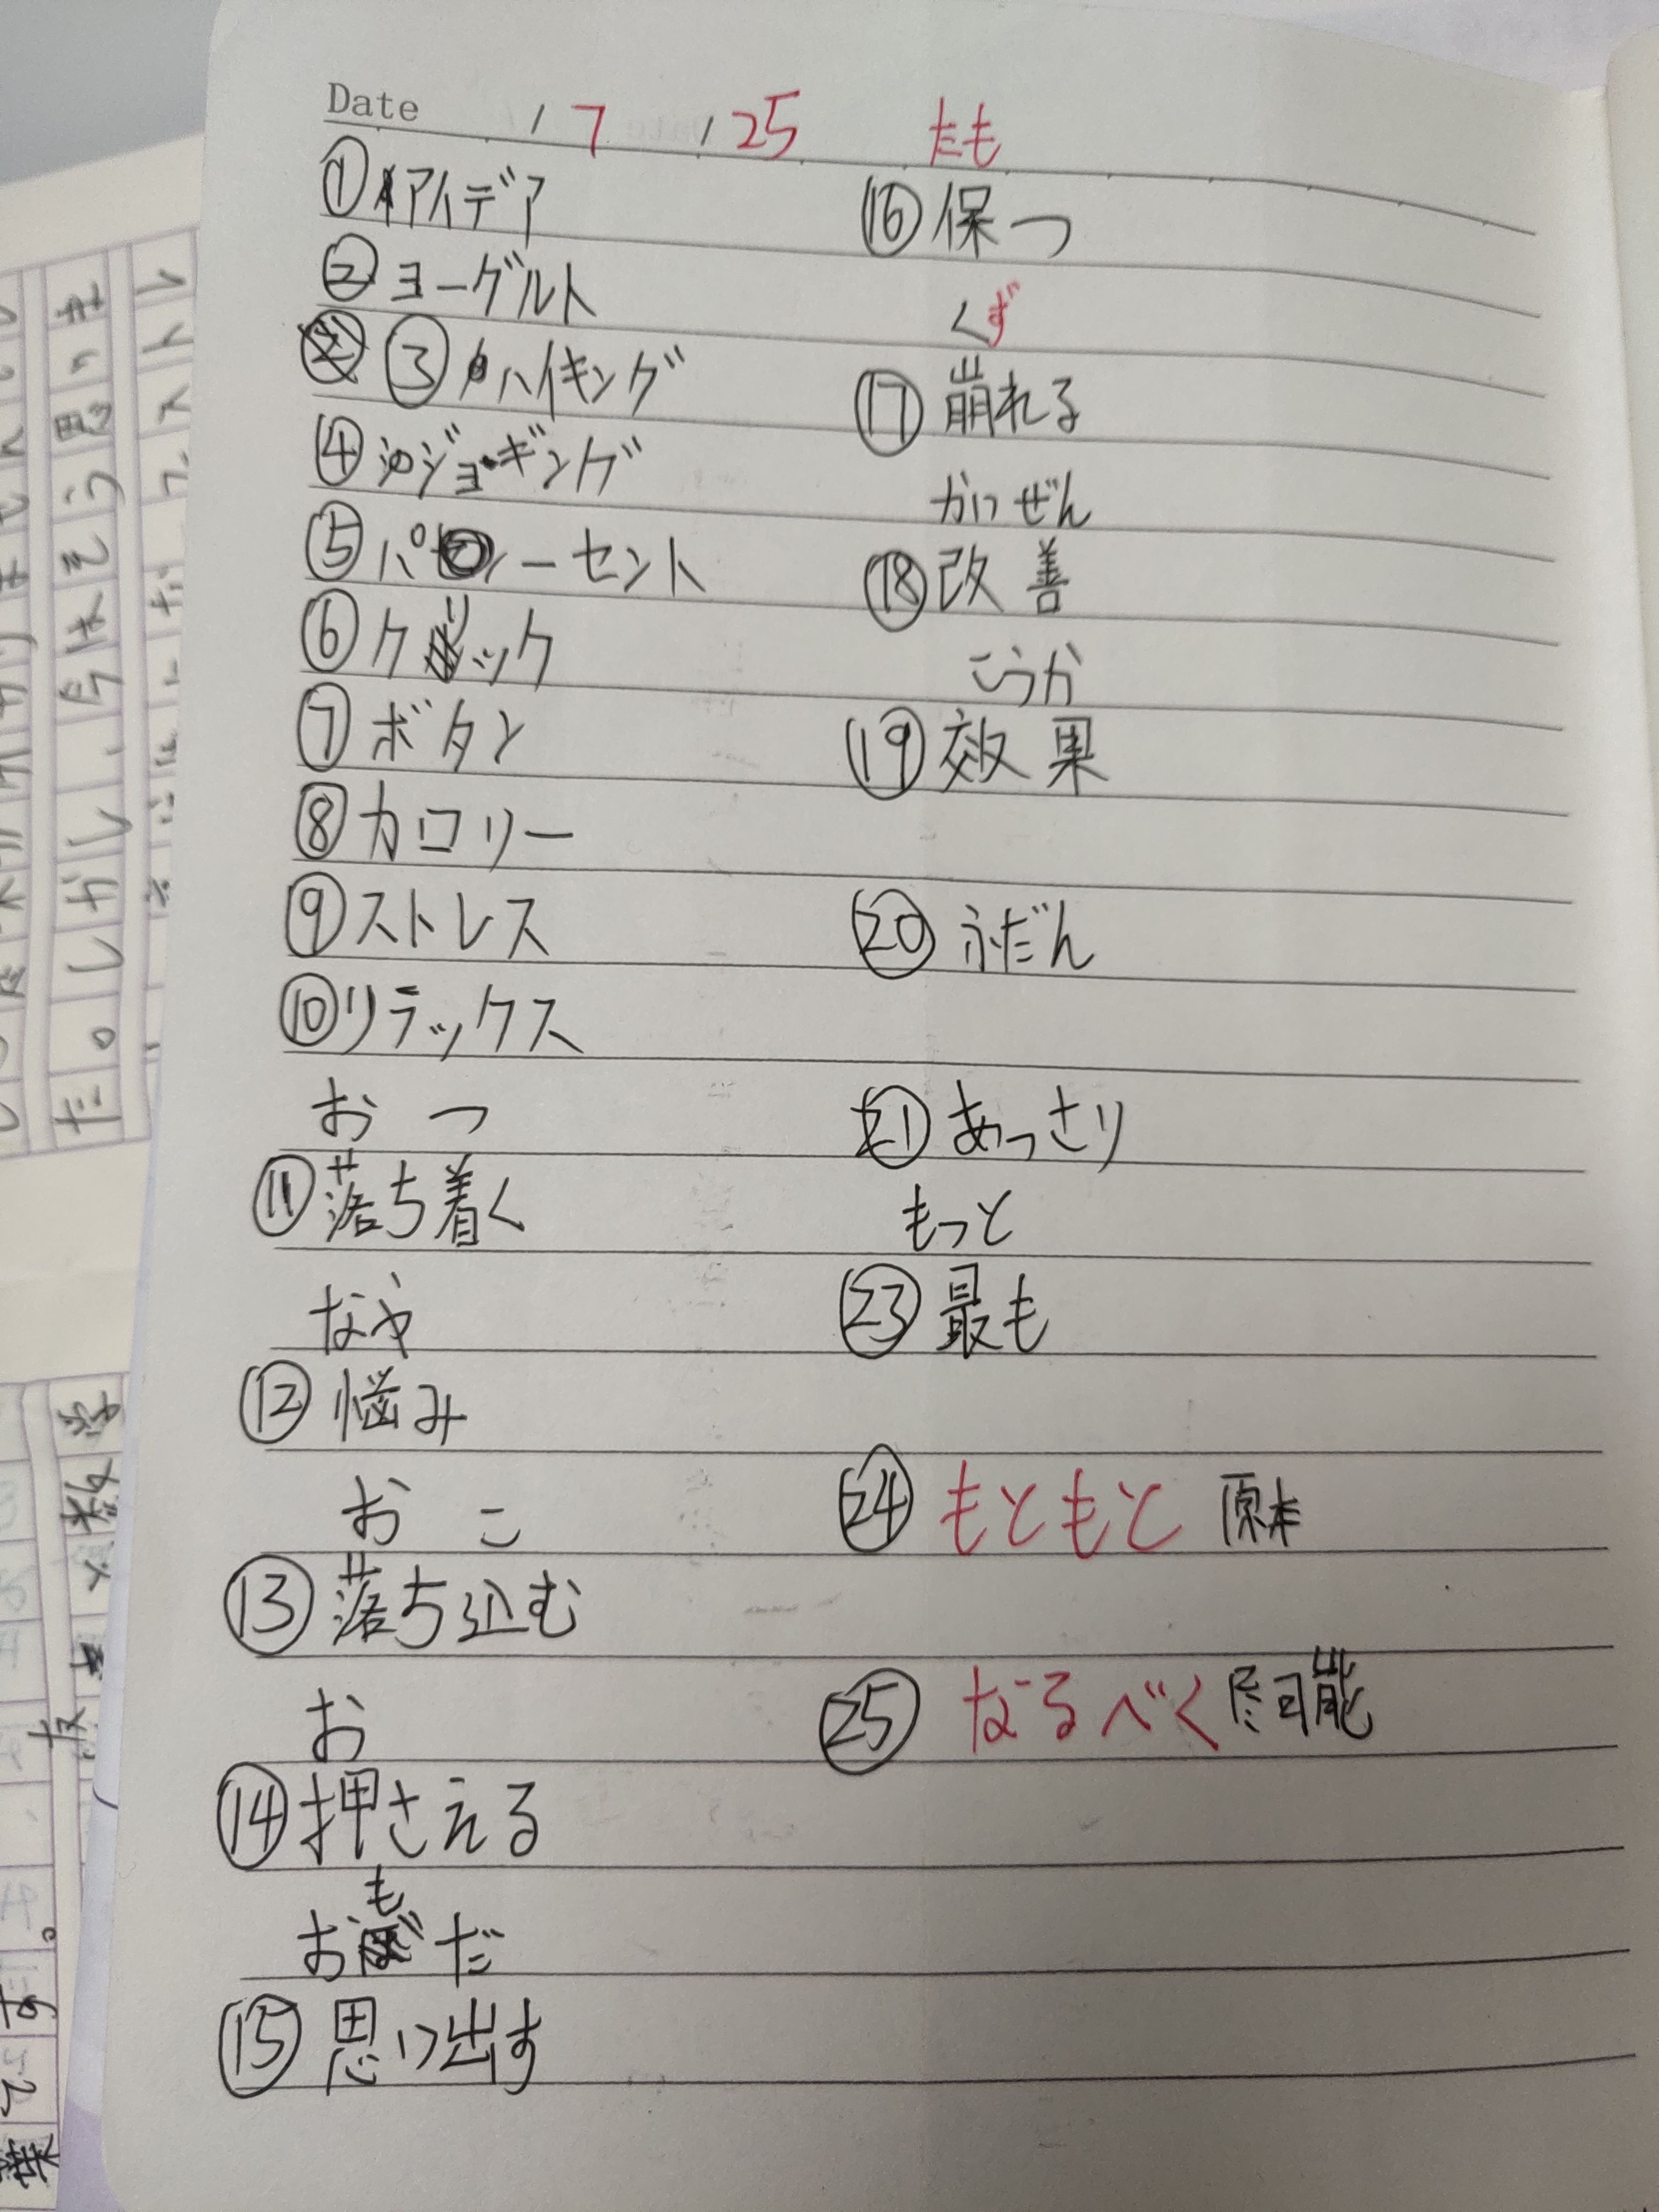 Date / 7 / 25
①アイデア
②ヨーグルト
③ハイキング
④ジョギング
⑤パーセント
⑥クリック
⑦ボタン
⑧カロリー
⑨ストレス
⑩リラックス
お つ
⑪落ち着く
なや
⑫悩み
お こ
⑬落ち込む
お
⑭押さえる
おも だ
⑮思い出す
たも
⑯保つ
くず
⑰崩れる
かいぜん
⑱改善
こうか
⑲効果
⑳ふだん
㉑あっさり
もっと
㉓最も
㉔もともと 原本
㉕なるべく 尽可能
今はそう思
た。しかし、